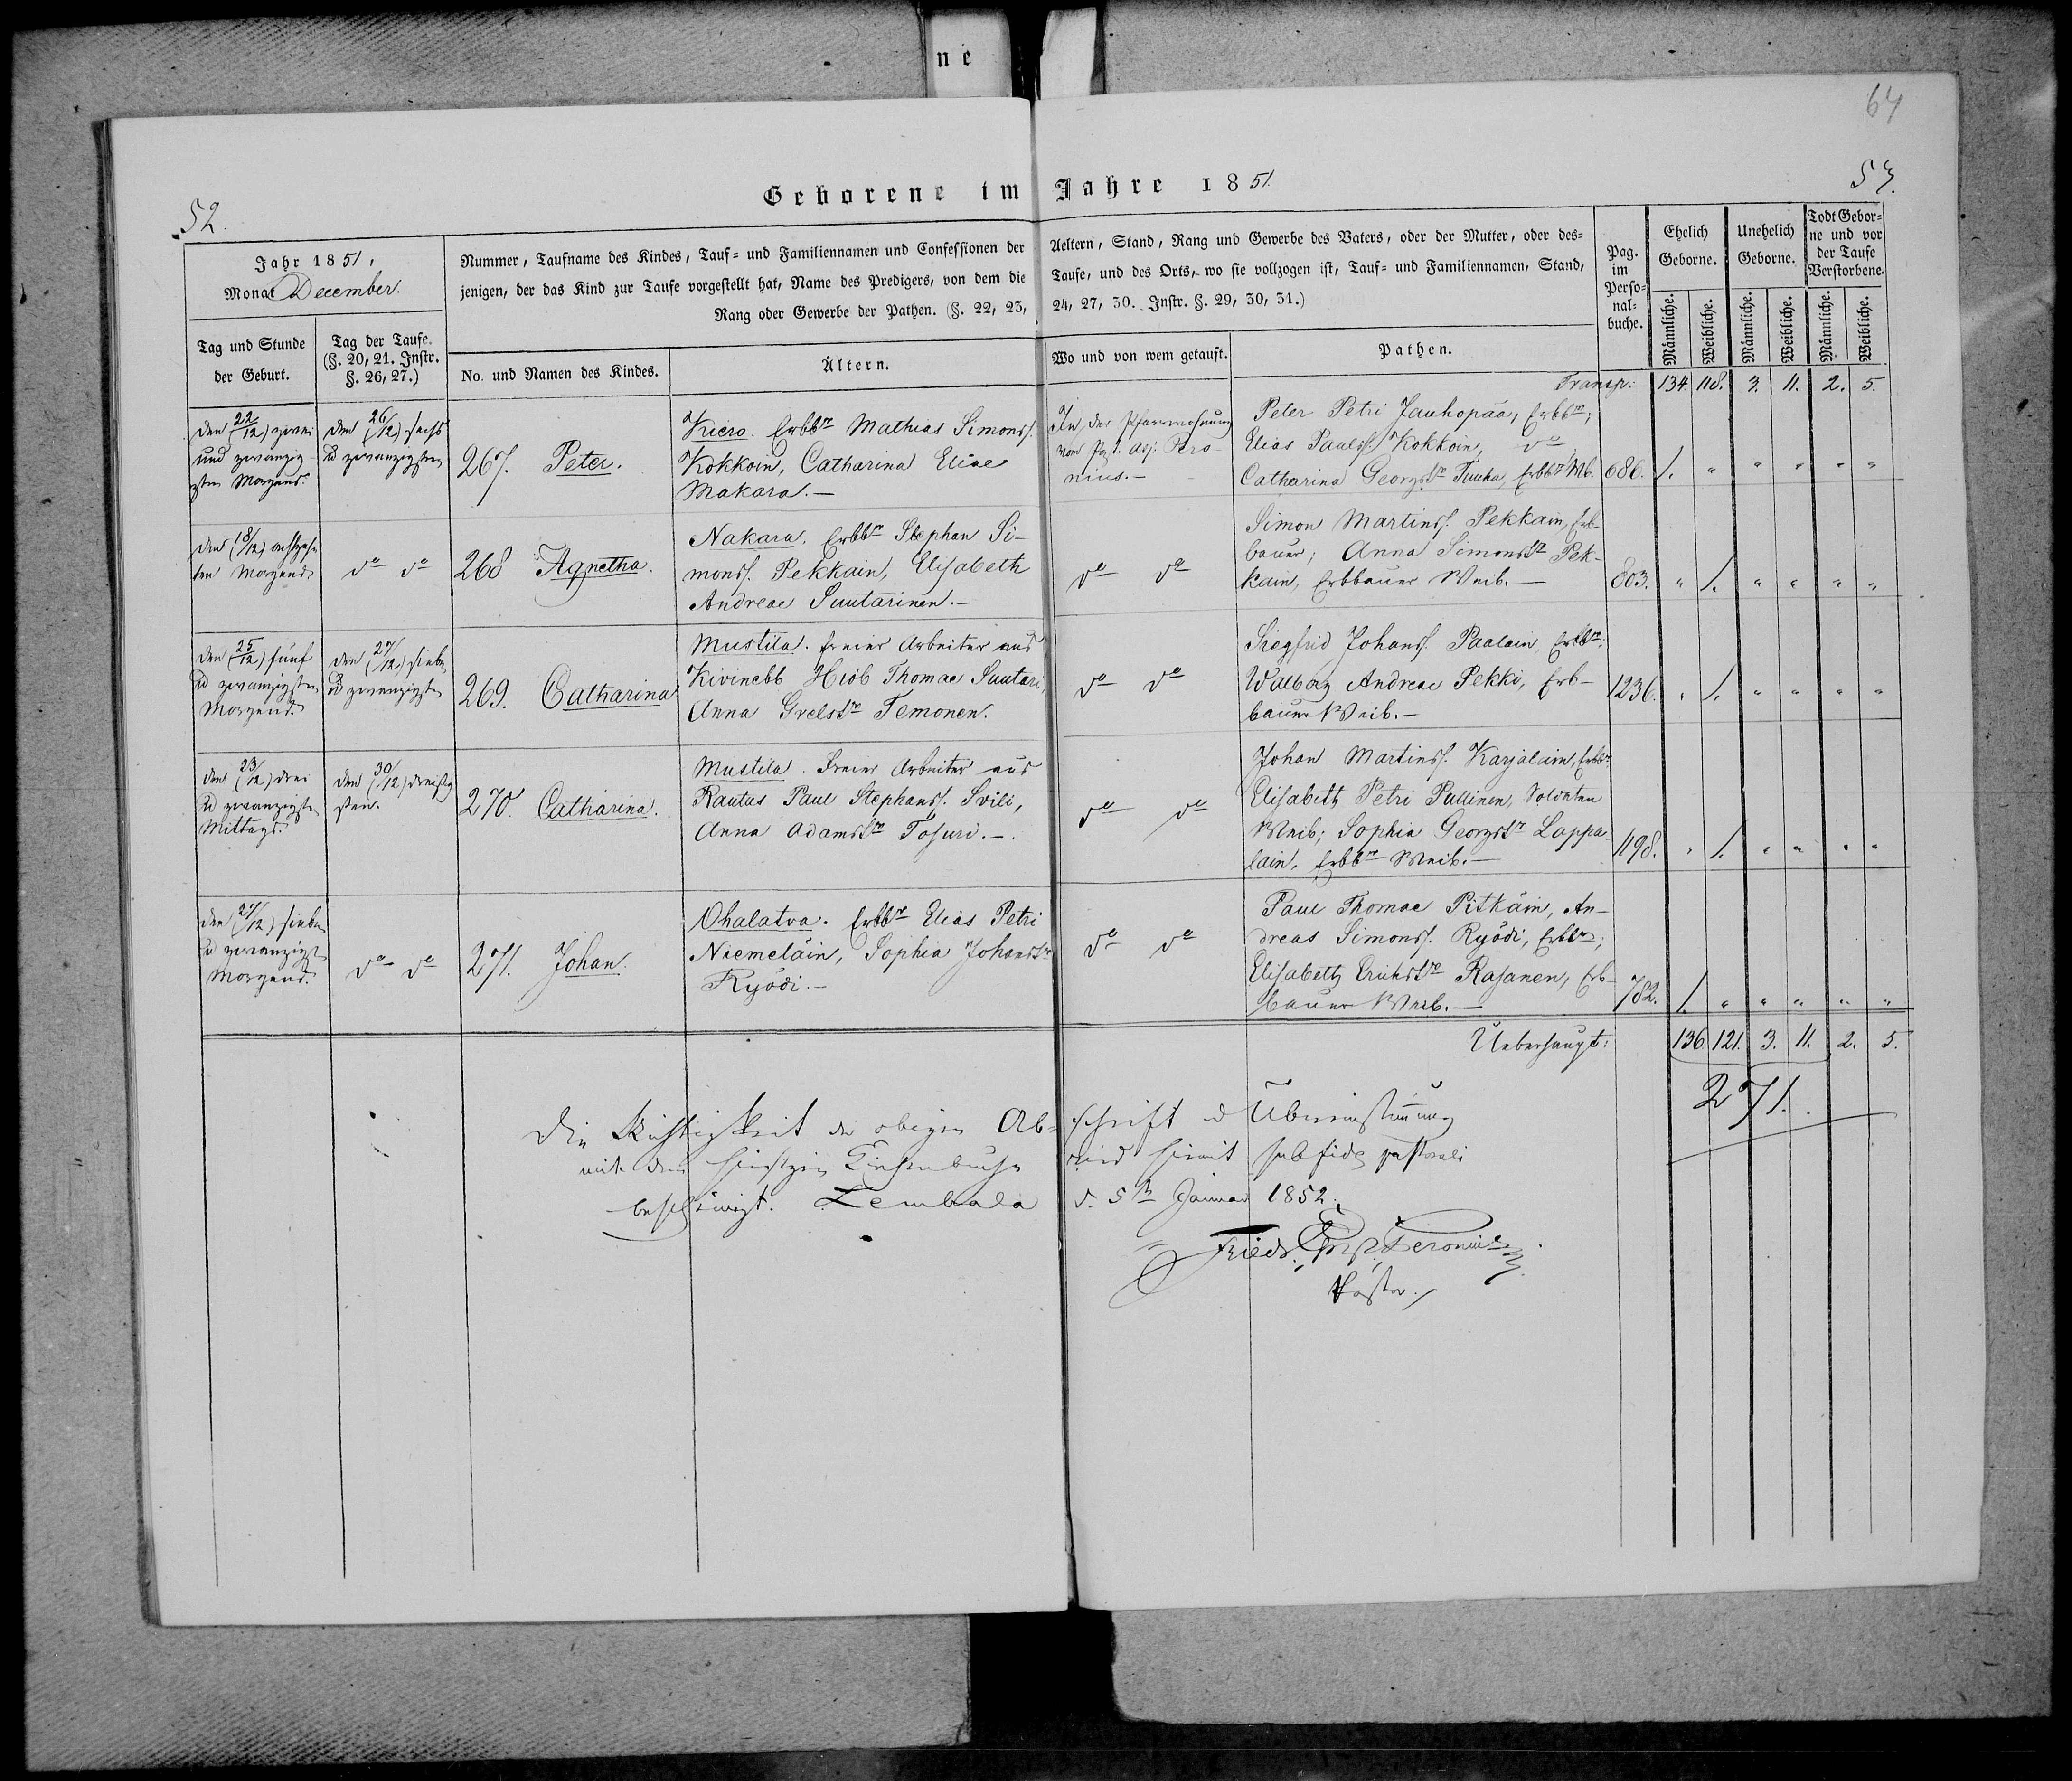 ne
64
52.
53.
Geborene im Jahre 1851.
Jahr 1851,
Monat December.
Nummer, Taufname des Kindes, Tauf- und Familiennamen und Confessionen der Aeltern, Stand, Rang und Gewerbe des Vaters, oder der Mutter, oder des-
jenigen, der das Kind zur Taufe vorgestellt hat, Name des Predigers, von dem die Taufe, und des Orts, wo sie vollzogen ist, Tauf- und Familiennamen, Stand,
Rang oder Gewerbe der Pathen. (§. 22, 23, 24, 27, 30. Instr. §. 29, 30, 31.)
Pag.
im
Perso-
nal-
buche.
Ehelich
Geborne.
Unehelich
Geborne.
Todt Gebor-
ne und vor
der Taufe
Verstorbene.
Männliche.
Weibliche.
Männliche.
Weibliche.
Männliche.
Weibliche.
Tag und Stunde
der Geburt.
Tag der Taufe.
(§. 20, 21. Instr.
§. 26, 27.)
No. und Namen des Kindes.
Ältern.
Wo und von wem getauft.
Pathen.
Transp: 134 118. 3. 11. 2. 5.
den (22/12) zwei
und zwanzig-
sten Morgens.
den (26/12) sechs
ud zwanzigsten
267. Peter.
Kiero. Erbbr Mathias Simonss.
Kokkoin, Catharina Eliae
Makara.—
In der Pfarrwohnung
vom Adj. Pero-
nius.—
Peter Petri Jauhopää, Erbbr;
Elias Paulss. Kokkoin, do
Catharina Georgstr Tuuha, Erbbr Wb.
686. 1. " " " " "
den (18/12) achtzehn
ten Morgends
do do
268 Agnetha.
Nakara. Erbbr Stephan Si-
monss. Pekkain, Elisabeth
Andreae Suutarinen.—
do do
Simon Martinss. Pekkain, Erb-
bauer; Anna Simonstr Pek-
kain, Erbbauer Weib.—
803. " 1. " " " "
den (25/12) fünf
ud zwanzigsten
Morgends.
den (27/12) sieben
ud zwanzigsten
269. Catharina
Mustila. freier Arbeiter aus
Kivinebb Hiob Thomae Suutari,
Anna Grelstr Temonen.
do do
Siegfrid Johanss. Paalain, Erbbr;
Walborg Andreae Pekki, Erb-
bauer Weib.—
1236. " 1. " " " "
den (23/12) drei
ud zwanzigsten
Mittags.
den (30/12) dreissig
sten.
270. Catharina.
Mustila. Freier Arbeiter aus
Rautus Paul Stephanss. Svili,
Anna Adamstr Tosuri.—.
do do
Johan Martinss. Karjalain, Erbbr
Elisabeth Petri Pullinen, Soldaten
Weib; Sophia Georgstr Lappa-
lain, Erbbr Weib.—
1198. " 1. " " " "
den (27/12) sieben
ud zwanzigst
Morgends.
do do
271. Johan.
Ohalatva. Erbbr Elias Petri
Niemeläin, Sophia Johanstr
Ryödi.—
do do
Paul Thomae Pitkäin, An-
dreas Simonss. Ryödi, Erbbr;
Elisabeth Erichstr Rasanen, Erb-
bauer Weib.—
782. 1. " " " " "
Ueberhaupt: 136 121. 3. 11. 2. 5.
271.
Die Richtigkeit der obigen Abschrift u Übereinstimmung
mit dem hiesigen Kirchenbuche wird hiemit sub fide pastorali
bescheinigt. Lembala d. 5ten Januar 1852.
Friedr. Peronius
Pastor.